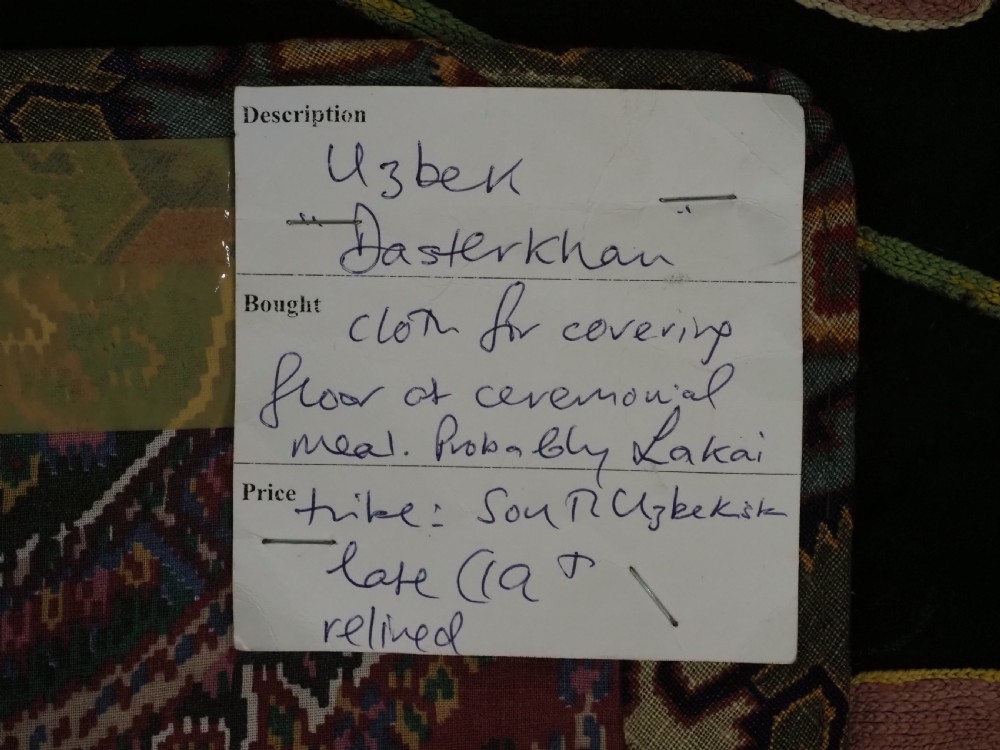 Description
Uzbek
Dasterkhan
Bought
cloth for covering
floor at ceremonial
meal. Probably Lakai
Price
tribe: South Uzbekistn
late C19th
relined